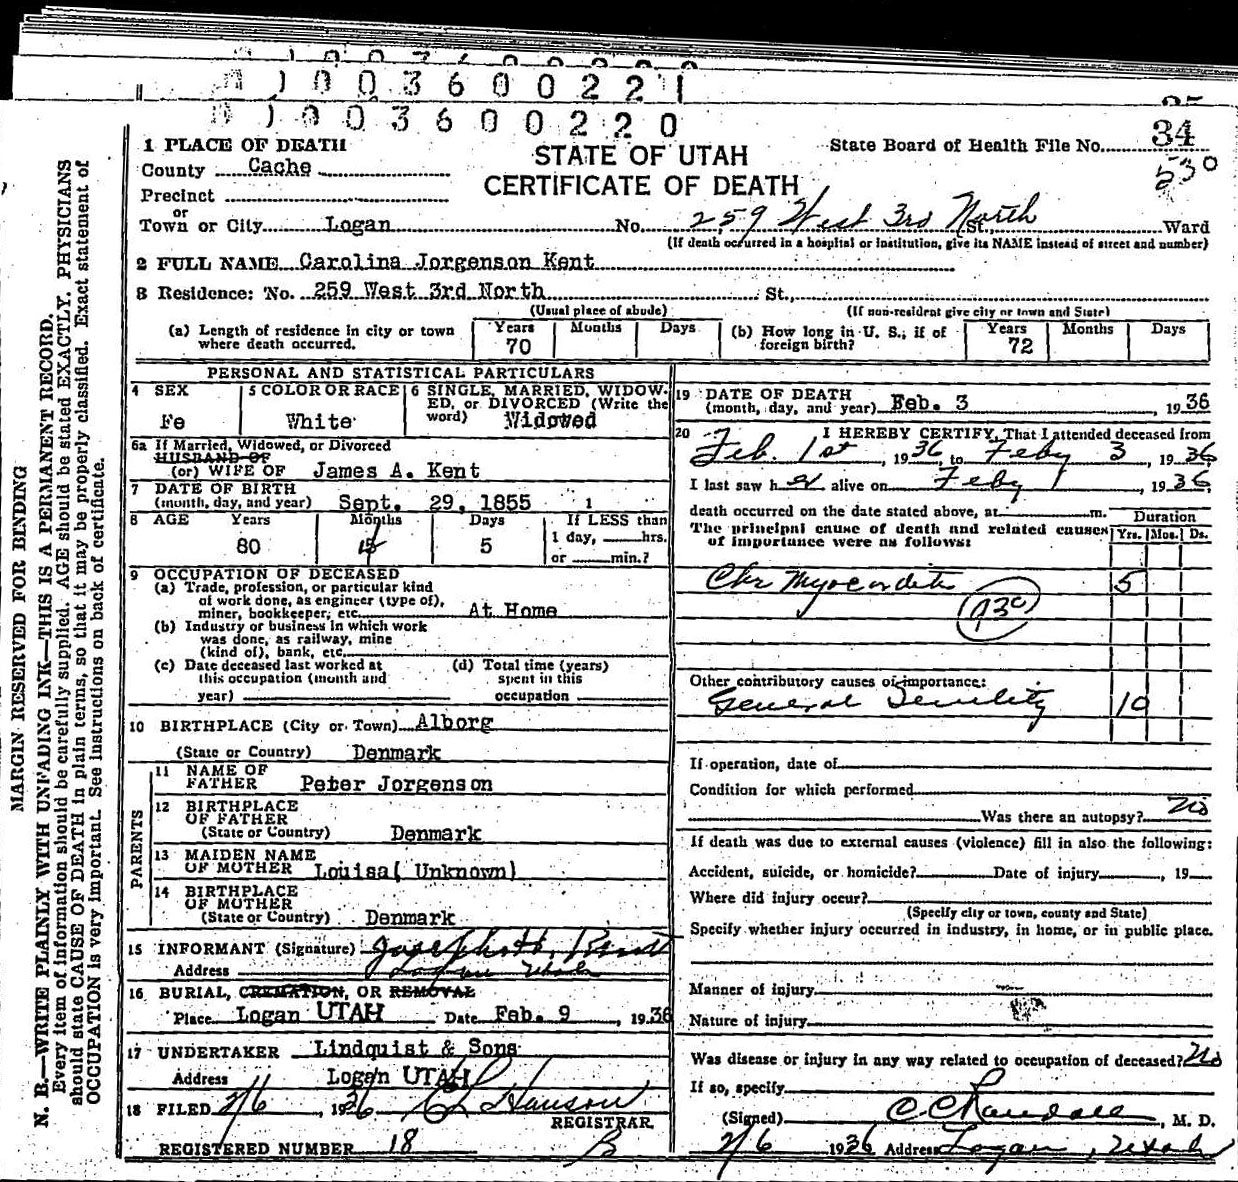 1003600221
1003600220
34
530
1 PLACE OF DEATH
STATE OF UTAH
CERTIFICATE OF DEATH
State Board of Health File No.
County Cache
Precinct
or
Town or City Logan No. 259 West 3rd North St., Ward
(If death occurred in a hospital or institution, give its NAME instead of street and number)
2 FULL NAME Carolina Jorgenson Kent
3 Residence: No. 259 West 3rd North St.,
(Usual place of abode) (If non-resident give city or town and State)
(a) Length of residence in city or town where death occurred. Years 70 Months Days
(b) How long in U. S., if of foreign birth? Years 72 Months Days
PERSONAL AND STATISTICAL PARTICULARS
4 SEX Fe
5 COLOR OR RACE White
6 SINGLE, MARRIED, WIDOWED, or DIVORCED (Write the word) Widowed
6a If Married, Widowed, or Divorced
HUSBAND OF
(or) WIFE OF James A. Kent
7 DATE OF BIRTH
(month, day, and year) Sept. 29, 1855 1
8 AGE Years Months Days If LESS than
80 5 1 day, hrs.
or min.?
9 OCCUPATION OF DECEASED
(a) Trade, profession, or particular kind
of work done, as engineer (type of),
miner, bookkeeper, etc. At Home
(b) Industry or business in which work
was done, as railway, mine
(kind of), bank, etc.
(c) Date deceased last worked at
this occupation (month and
year)
(d) Total time (years)
spent in this
occupation
10 BIRTHPLACE (City or Town) Alborg
(State or Country) Denmark
PARENTS
11 NAME OF
FATHER Peter Jorgenson
12 BIRTHPLACE
OF FATHER
(State or Country) Denmark
13 MAIDEN NAME
OF MOTHER Louisa( Unknown)
14 BIRTHPLACE
OF MOTHER
(State or Country) Denmark
15 INFORMANT (Signature) Kent
Address Logan Utah
16 BURIAL, CREMATION, OR REMOVAL
Place Logan UTAH Date Feb. 9, 1936
17 UNDERTAKER Lindquist & Sons
Address Logan UTAH
18 FILED 2/6, 1936 Hanson
REGISTRAR
REGISTERED NUMBER 18
19 DATE OF DEATH
(month, day, and year) Feb. 3, 1936
20 I HEREBY CERTIFY, That I attended deceased from
Feb. 1st, 1936, to Feby 3, 1936,
I last saw her alive on Feby 1, 1936,
death occurred on the date stated above, at m.
The principal cause of death and related causes
of importance were as follows:
Duration
Yrs. Mos. Ds.
Chr Myocarditis 5
93c
Other contributory causes of importance:
General Senility 10
If operation, date of
Condition for which performed
Was there an autopsy? No
If death was due to external causes (violence) fill in also the following:
Accident, suicide, or homicide? Date of injury, 19
Where did injury occur?
(Specify city or town, county and State)
Specify whether injury occurred in industry, in home, or in public place.
Manner of injury
Nature of injury
Was disease or injury in any way related to occupation of deceased? No
If so, specify
(Signed) C C Randall, M. D.
2/6 1936 Address Logan, Utah
MARGIN RESERVED FOR BINDING
N. B.—WRITE PLAINLY WITH UNFADING INK—THIS IS A PERMANENT RECORD.
Every item of information should be carefully supplied. AGE should be stated EXACTLY. PHYSICIANS
should state CAUSE OF DEATH in plain terms, so that it may be properly classified. Exact statement of
OCCUPATION is very important. See instructions on back of certificate.